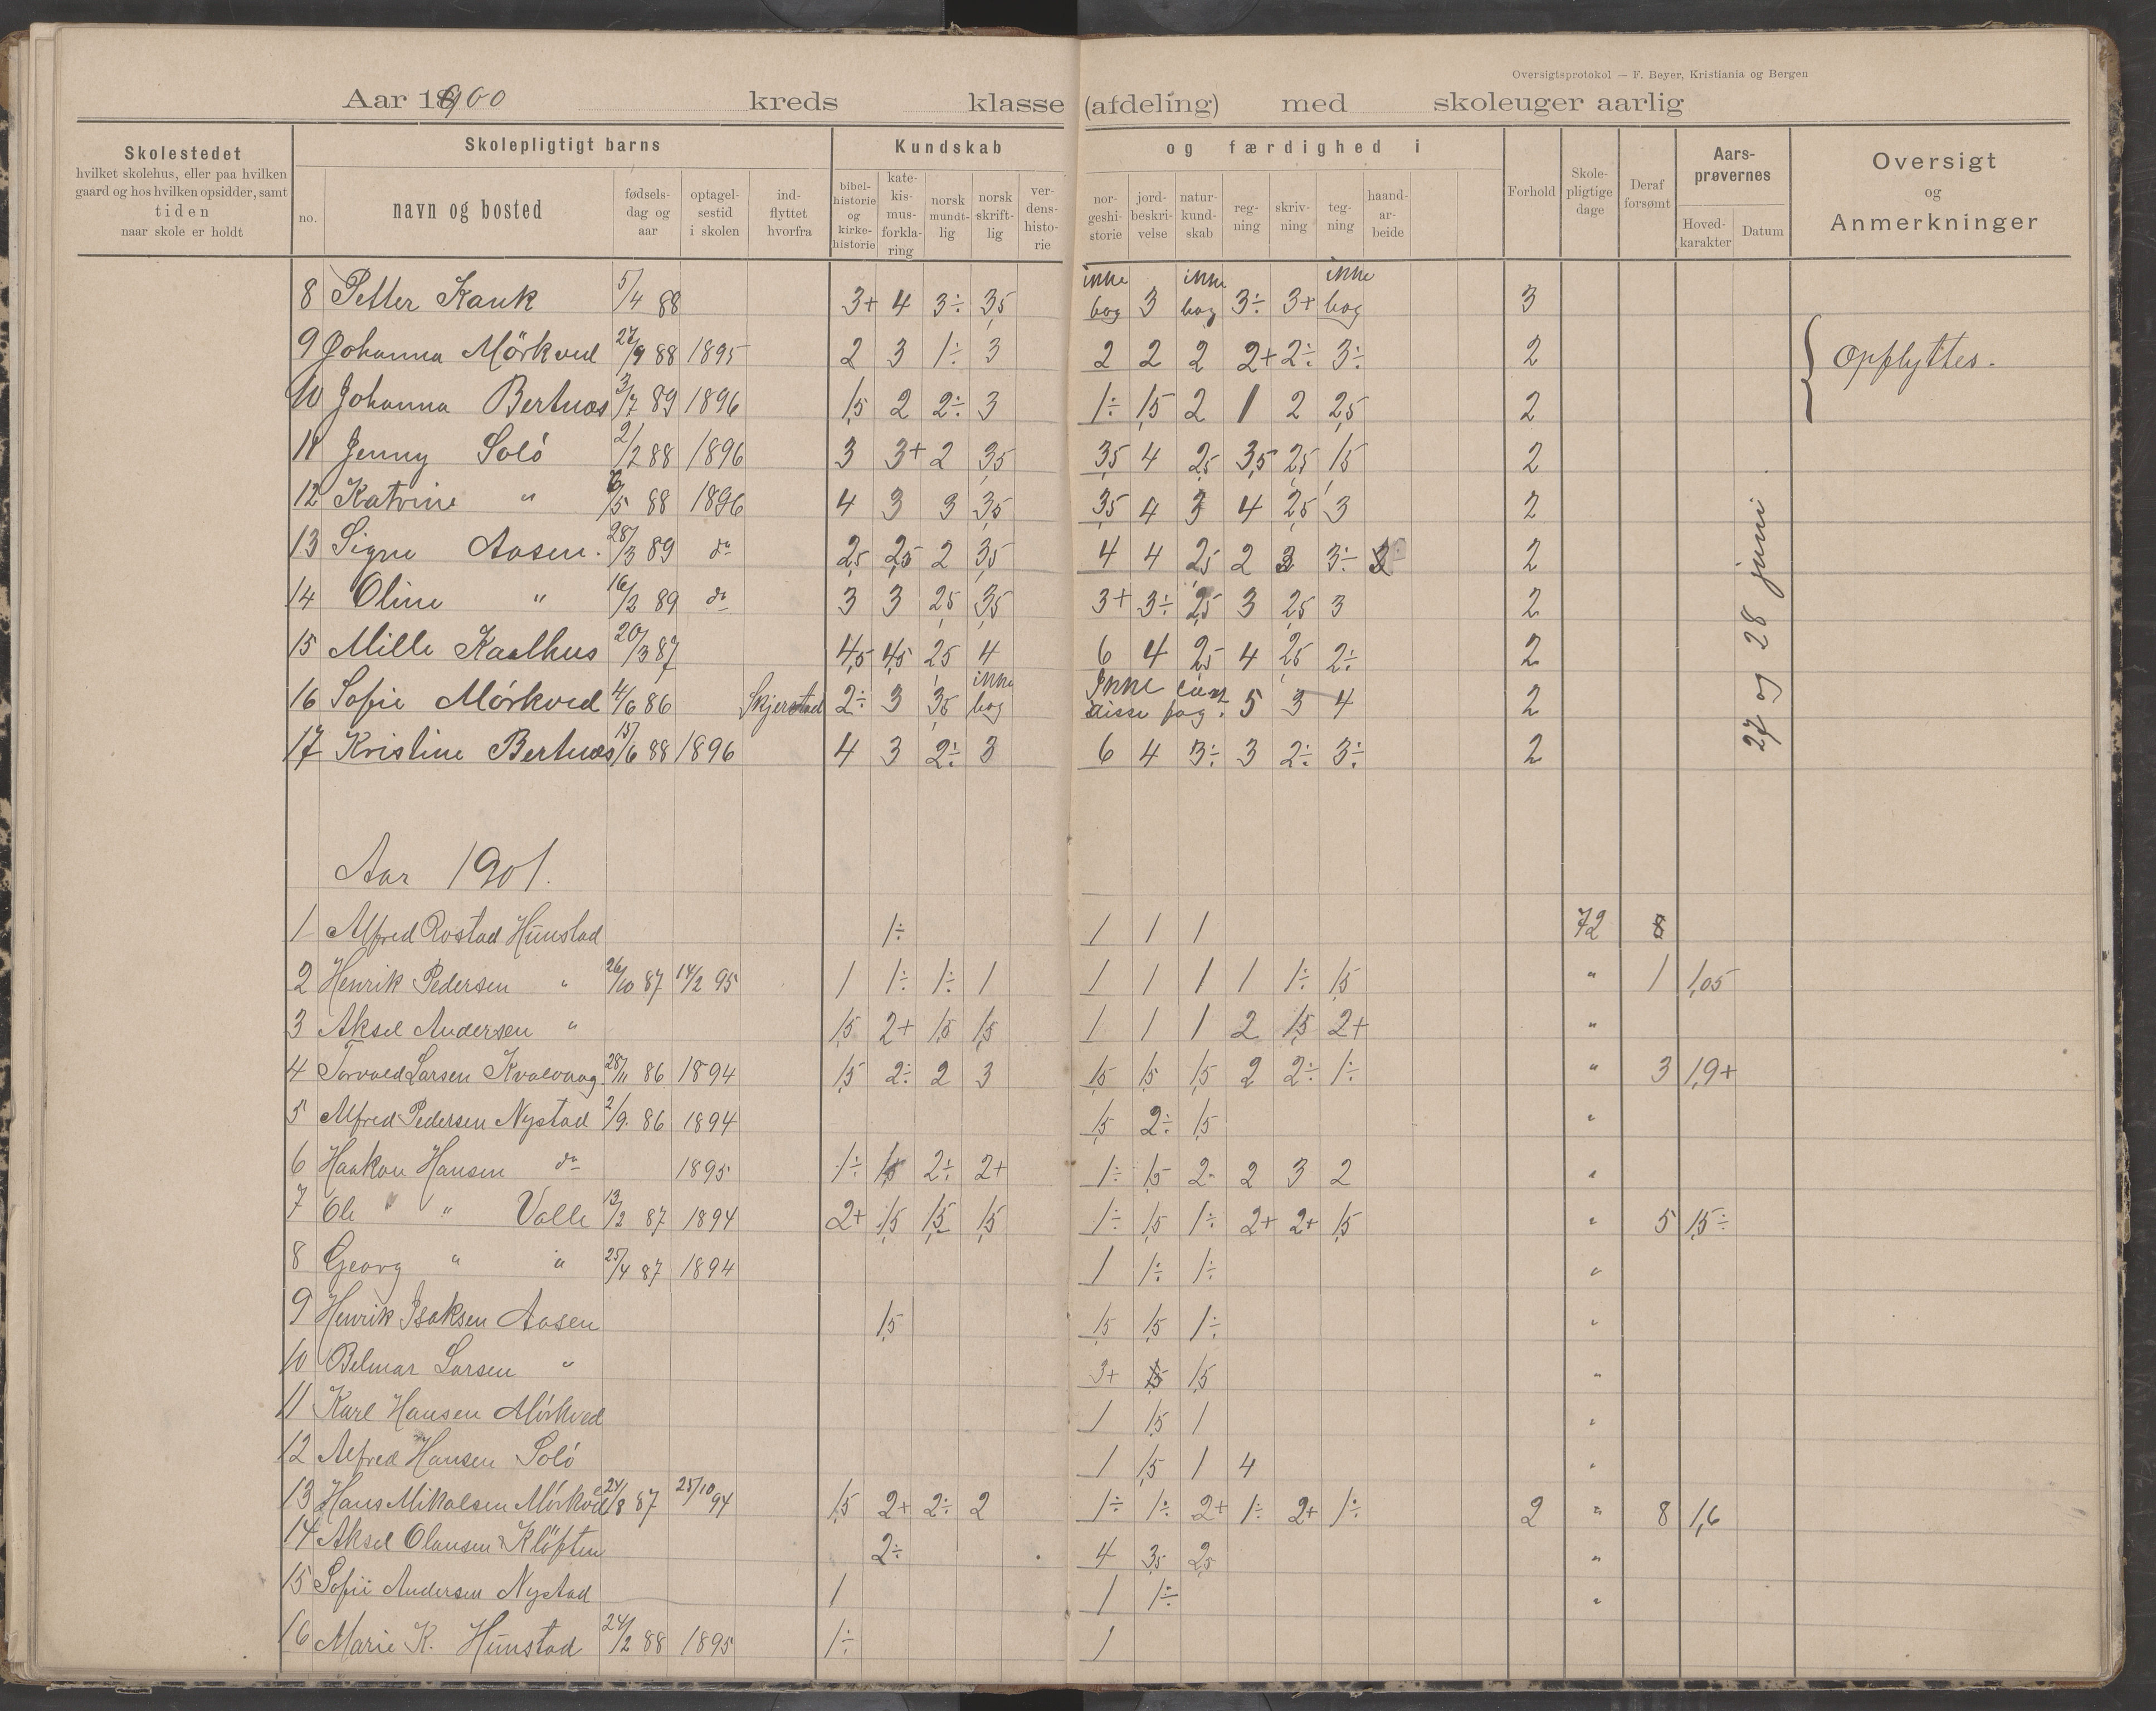 Oversigtsprotokol — F. Beyer, Kristiania og Bergen
Aar 1900 kreds klasse (afdeling) med skoleuger aarlig
Skolestedet
hvilket skolehus, eller paa hvilken
gaard og hos hvilken opsidder, samt
tiden
naar skole er holdt
Skolepligtigt barns
no.
navn og bosted
fødsels-
dag og
aar
optagel-
sestid
i skolen
ind-
flyttet
hvorfra
Kundskab og færdighed i
bibel-
historie
og
kirke-
historie
kate-
kis-
mus-
forkla-
ring
norsk
mundt-
lig
norsk
skrift-
lig
ver-
dens-
histo-
rie
nor-
geshi-
storie
jord-
beskri-
velse
natur-
kund-
skab
reg-
ning
skriv-
ning
teg-
ning
haand-
ar-
beide
Forhold
Skole-
pligtige
dage
Deraf
forsømt
Aars-
prøvernes
Hoved-
karakter
Datum
Oversigt
og
Anmerkninger
8 Petter Kauk 5/4 88 3+ 4 3÷ 3,5 ikke bog 3 ikke bog 3÷ 3+ ikke bog 3
9 Johanna Mörkved 27/9 88 1895 2 3 1÷ 3 2 2 2 2+ 2÷ 3÷ 2 Opflyttes.
10 Johanna Bertnæs 3/7 89 1896 1,5 2 2÷ 3 1÷ 1,5 2 1 2 2,5 2
11 Jenny Soló 2/2 88 1896 3 3+ 2 3,5 3,5 4 2,5 3,5 2,5 1,5 2
12 Katrine " 6/5 88 1896 4 3 3 3,5 3,5 4 3 4 2,5 3 2
13 Signe Aasen. 28/3 89 do 2,5 2,5 2 3,5 4 4 2,5 2 3 3÷ 2
14 Oline " 16/2 89 do 3 3 2,5 3,5 3+ 3÷ 2,5 3 2,5 3 2
15 Mille Kaalhus 20/3 87 4,5 4,5 2,5 4 6 4 2,5 4 2,5 2÷ 2
16 Sofie Mórkved 4/6 86 Skjerstad 2÷ 3 3,5 ikke bog Ikke læst disse fag. 5 3 4 2
17 Kristine Bertnæs 15/6 88 1896 4 3 2÷ 3 6 4 3÷ 3 2÷ 3÷ 2
27 og 28 juni.
Aar 1901.
1 Alfred Rostad Hunstad 1÷ 1 1 1 72 8
2 Henrik Pedersen " 26/10 87 14/2 95 1 1÷ 1÷ 1 1 1 1 1 1÷ 1,5 " 1 1,05
3 Aksel Andersen " 1,5 2+ 1,5 1,5 1 1 1 2 1,5 2+ "
4 Torvald Larsen Kvalvaag. 28/11 86 1894 1,5 2÷ 2 3 1,5 1,5 1,5 2 2÷ 1÷ " 3 1,9+
5 Alfred Pedersen Nystad 2/9. 86 1894 1,5 2÷ 1,5 "
6 Haakon Hansen do 1895 1÷ 1,5 2÷ 2+ 1÷ 1,5 2- 2 3 2 "
7 Ole " " Valle 13/2 87 1894 2+ 1,5 1,5 1,5 1÷ 1,5 1÷ 2+ 2+ 1,5 " 5 1,5÷
8 Georg " " 25/4 87 1894 1 1÷ 1÷ "
9 Henrik Isaksen Aasen 1,5 1,5 1,5 1÷ "
10 Belmar Larsen " 3+ 1,5 1,5 "
11 Karl Hansen Mórkved 1 1,5 1 "
12 Alfred Hansen Soló 1 1,5 1 4 "
13 Hans Mikalsen Mórkved 24/8 87 25/10 94 1,5 2+ 2÷ 2 1÷ 1÷ 2+ 1÷ 2+ 1÷ 2 " 8 1,6
14 Aksel Olausen Klöften 2÷ 4 3,5 2,5 "
15 Sofie Andersen Nystad 1 1 1÷ "
16 Marie K. Hunstad 24/2 88 1895 1÷ 1